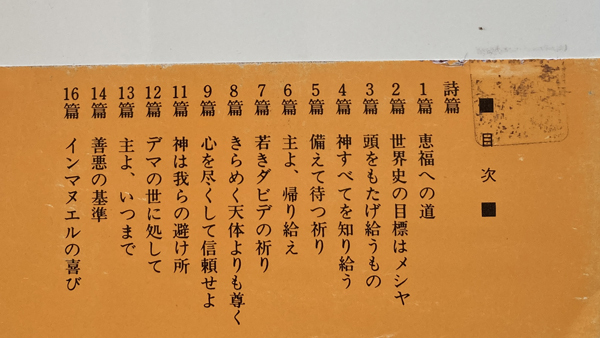 ■ 目次 ■
詩篇
1篇 恵福への道
2篇 世界史の目標はメシヤ
3篇 頭をもたげ給うもの
4篇 神すべてを知り給う
5篇 備えて待つ祈り
6篇 主よ、帰り給え
7篇 若きダビデの祈り
8篇 きらめく天体よりも尊く
9篇 心を尽くして信頼せよ
11篇 神は我らの避け所
12篇 デマの世に処して
13篇 主よ、いつまで
14篇 善悪の基準
16篇 インマヌエルの喜び